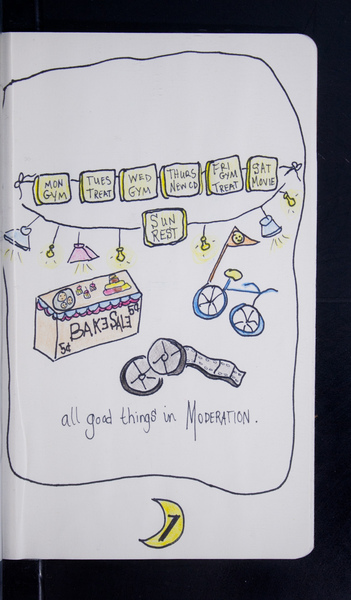 MON GYM
TUES TREAT
WED GYM
THURS NEW CD
FRI GYM TREAT
SAT MOVIE
SUN REST
BAKE SALE
5¢
5¢
all good things in MODERATION.
7